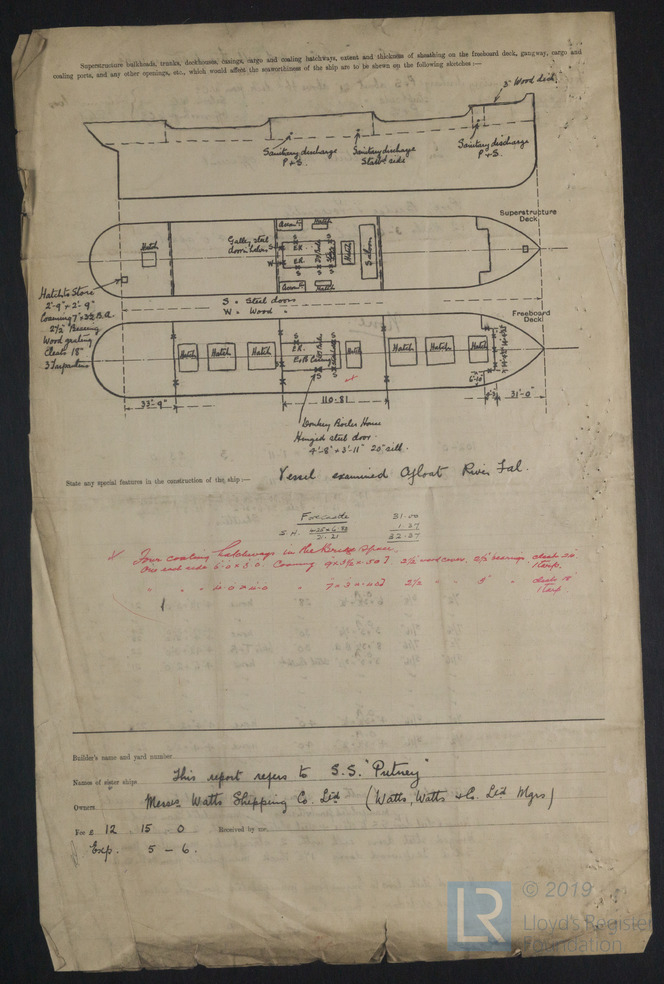 Superstructure bulkheads, trunks, deckhouses, casings, cargo and coaling hatchways, extent and thickness of sheathing on the freeboard deck, gangway, cargo and
coaling ports, and any other openings, etc., which would affect the seaworthiness of the ship are to be shewn on the following sketches :—
3" Wood deck
Sanitary discharge
P & S.
Sanitary discharge
Starbd side
Sanitary discharge
P & S.
Superstructure
Deck
Hatch
Galley, steel
Accom
Hatch
E.R.
E.R.
Hatch
Saloon
Accom
Hatch
S = Steel doors
W = Wood "
Hatch to Store
2'-9" x 2'-9"
Coaming 7" x
2½" Bearing
Wood grating
Cleats 18"
3 Tarpaulins
Freeboard
Deck
Hatch
Hatch
Hatch
E.R.
Hatch
Hatch
Hatch
Hatch
33'-9"
110·81
31'-0"
Donkey Boiler House
Hinged steel door
4'-8" x 3'-11" 20" sill.
State any special features in the construction of the ship :—
Vessel examined Afloat River Fal.
Forecastle
31.00
1.27
S.H.
32.27
X Four coaling hatchways in the Bridge space.
One each side 6·0 x 3·0. Coaming 9 x 3½ x ·50 2½ wood covers, 2½ bearings, cleats 24"
1 tarp.
" " " " 7 x 3 x 2½ " 3" " cleats 18"
1 tarp
Builder's name and yard number
Names of sister ships
This report refers to S.S. "Putney"
Owners
Messrs Watts Shipping Co. Ltd (Watts, Watts & Co. Ltd Mgrs)
Fee £ 12 15 0 Received by me,
Exp. 5 – 6.
LR
© 2019
Lloyd's Register
Foundation